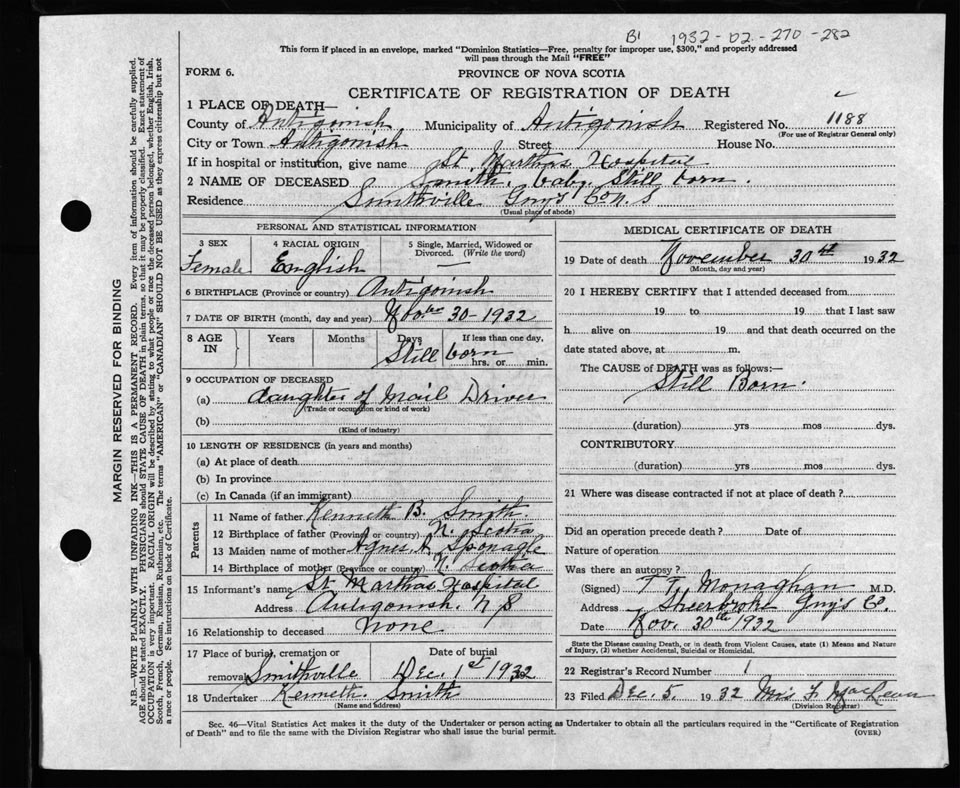 B' 1932-02-270-282
This form if placed in an envelope, marked "Dominion Statistics—Free, penalty for improper use, $300," and properly addressed
will pass through the Mail "FREE"
FORM 6. PROVINCE OF NOVA SCOTIA
CERTIFICATE OF REGISTRATION OF DEATH
1 PLACE OF DEATH—
County of Antigonish Municipality of Antigonish Registered No. 1188
(For use of Registrar General only)
City or Town Antigonish Street House No.
If in hospital or institution, give name St Marthas Hospital
2 NAME OF DECEASED Smith, baby, Still born.
Residence Smithville Guy's Co N.S
(Usual place of abode)
PERSONAL AND STATISTICAL INFORMATION
3 SEX 4 RACIAL ORIGIN 5 Single, Married, Widowed or Divorced. (Write the word)
Female English —
6 BIRTHPLACE (Province or country) Antigonish
7 DATE OF BIRTH (month, day and year) Novber 30-1932
8 AGE IN Years Months Days If less than one day,
Still born hrs. or min.
9 OCCUPATION OF DECEASED
(a) daughter of Mail Driver
(Trade or occupation or kind of work)
(b)
(Kind of industry)
10 LENGTH OF RESIDENCE (in years and months)
(a) At place of death
(b) In province
(c) In Canada (if an immigrant)
Parents
11 Name of father Kenneth B. Smith
12 Birthplace of father (Province or country) N. Scotia
13 Maiden name of mother Agnes A. Sponagle
14 Birthplace of mother (Province or country) N. Scotia
15 Informant's name St. Marthas Hospital
Address Antigonish, N S
16 Relationship to deceased none
17 Place of burial, cremation or removal Date of burial
Smithville Dec. 1st 1932
18 Undertaker Kenneth Smith
(Name and address)
MEDICAL CERTIFICATE OF DEATH
19 Date of death November 30th 1932
(Month, day and year)
20 I HEREBY CERTIFY that I attended deceased from
19 to 19 that I last saw
h alive on 19 and that death occurred on the
date stated above, at m.
The CAUSE of DEATH was as follows:—
Still Born.
(duration) yrs mos dys.
CONTRIBUTORY
(duration) yrs mos dys.
21 Where was disease contracted if not at place of death?
Did an operation precede death? Date of
Nature of operation
Was there an autopsy?
(Signed) T T Monaghan M.D.
Address Sheerbroke Guy's Co.
Date Nov. 30th 1932
State the Disease causing Death, or in death from Violent Causes, state (1) Means and Nature
of Injury, (2) whether Accidental, Suicidal or Homicidal.
22 Registrar's Record Number 1
23 Filed Dec. 5 1932 Mrs F MacLean
(Division Registrar)
Sec. 46—Vital Statistics Act makes it the duty of the Undertaker or person acting as Undertaker to obtain all the particulars required in the "Certificate of Registration
of Death" and to file the same with the Division Registrar who shall issue the burial permit. (OVER)
MARGIN RESERVED FOR BINDING
N.B.—WRITE PLAINLY WITH UNFADING INK—THIS IS A PERMANENT RECORD. Every item of information should be carefully supplied.
AGE should be stated EXACTLY. PHYSICIANS should STATE CAUSE OF DEATH in plain terms, so that it may be properly classified. Exact statement of
OCCUPATION is very important. RACIAL ORIGIN will be described by stating to what people or race the deceased person belonged, whether English, Irish,
Scotch, French, German, Russian, Ruthenian, etc. The terms "AMERICAN" or "CANADIAN" SHOULD NOT BE USED as they express citizenship but not
a race or people. See instructions on back of Certificate.